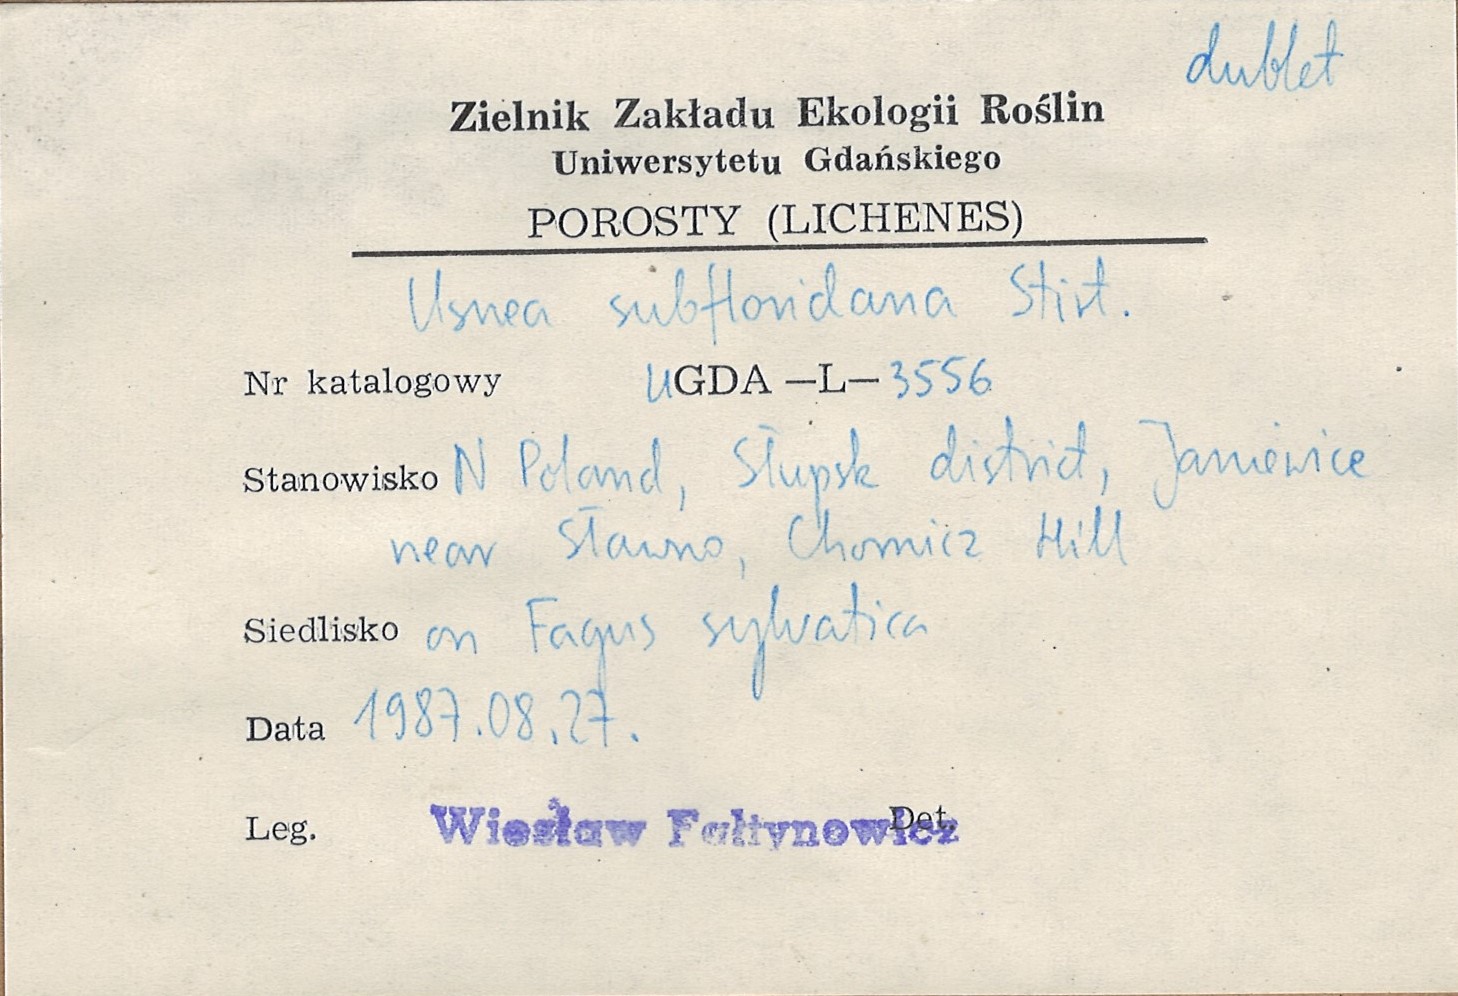 dublet
Zielnik Zakładu Ekologii Roślin
Uniwersytetu Gdańskiego
POROSTY (LICHENES)
Usnea subfloridana Stirt.
Nr katalogowy UGDA —L— 3556
Stanowisko N Poland, Słupsk district, Janiewice
near Sławno, Chomicz Hill
Siedlisko on Fagus sylvatica
Data 1987.08.27.
Leg. Wiesław Fałtynowicz Det.